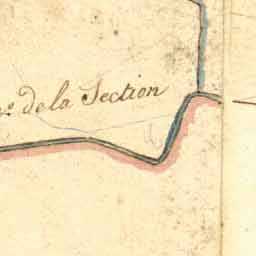 de la Section